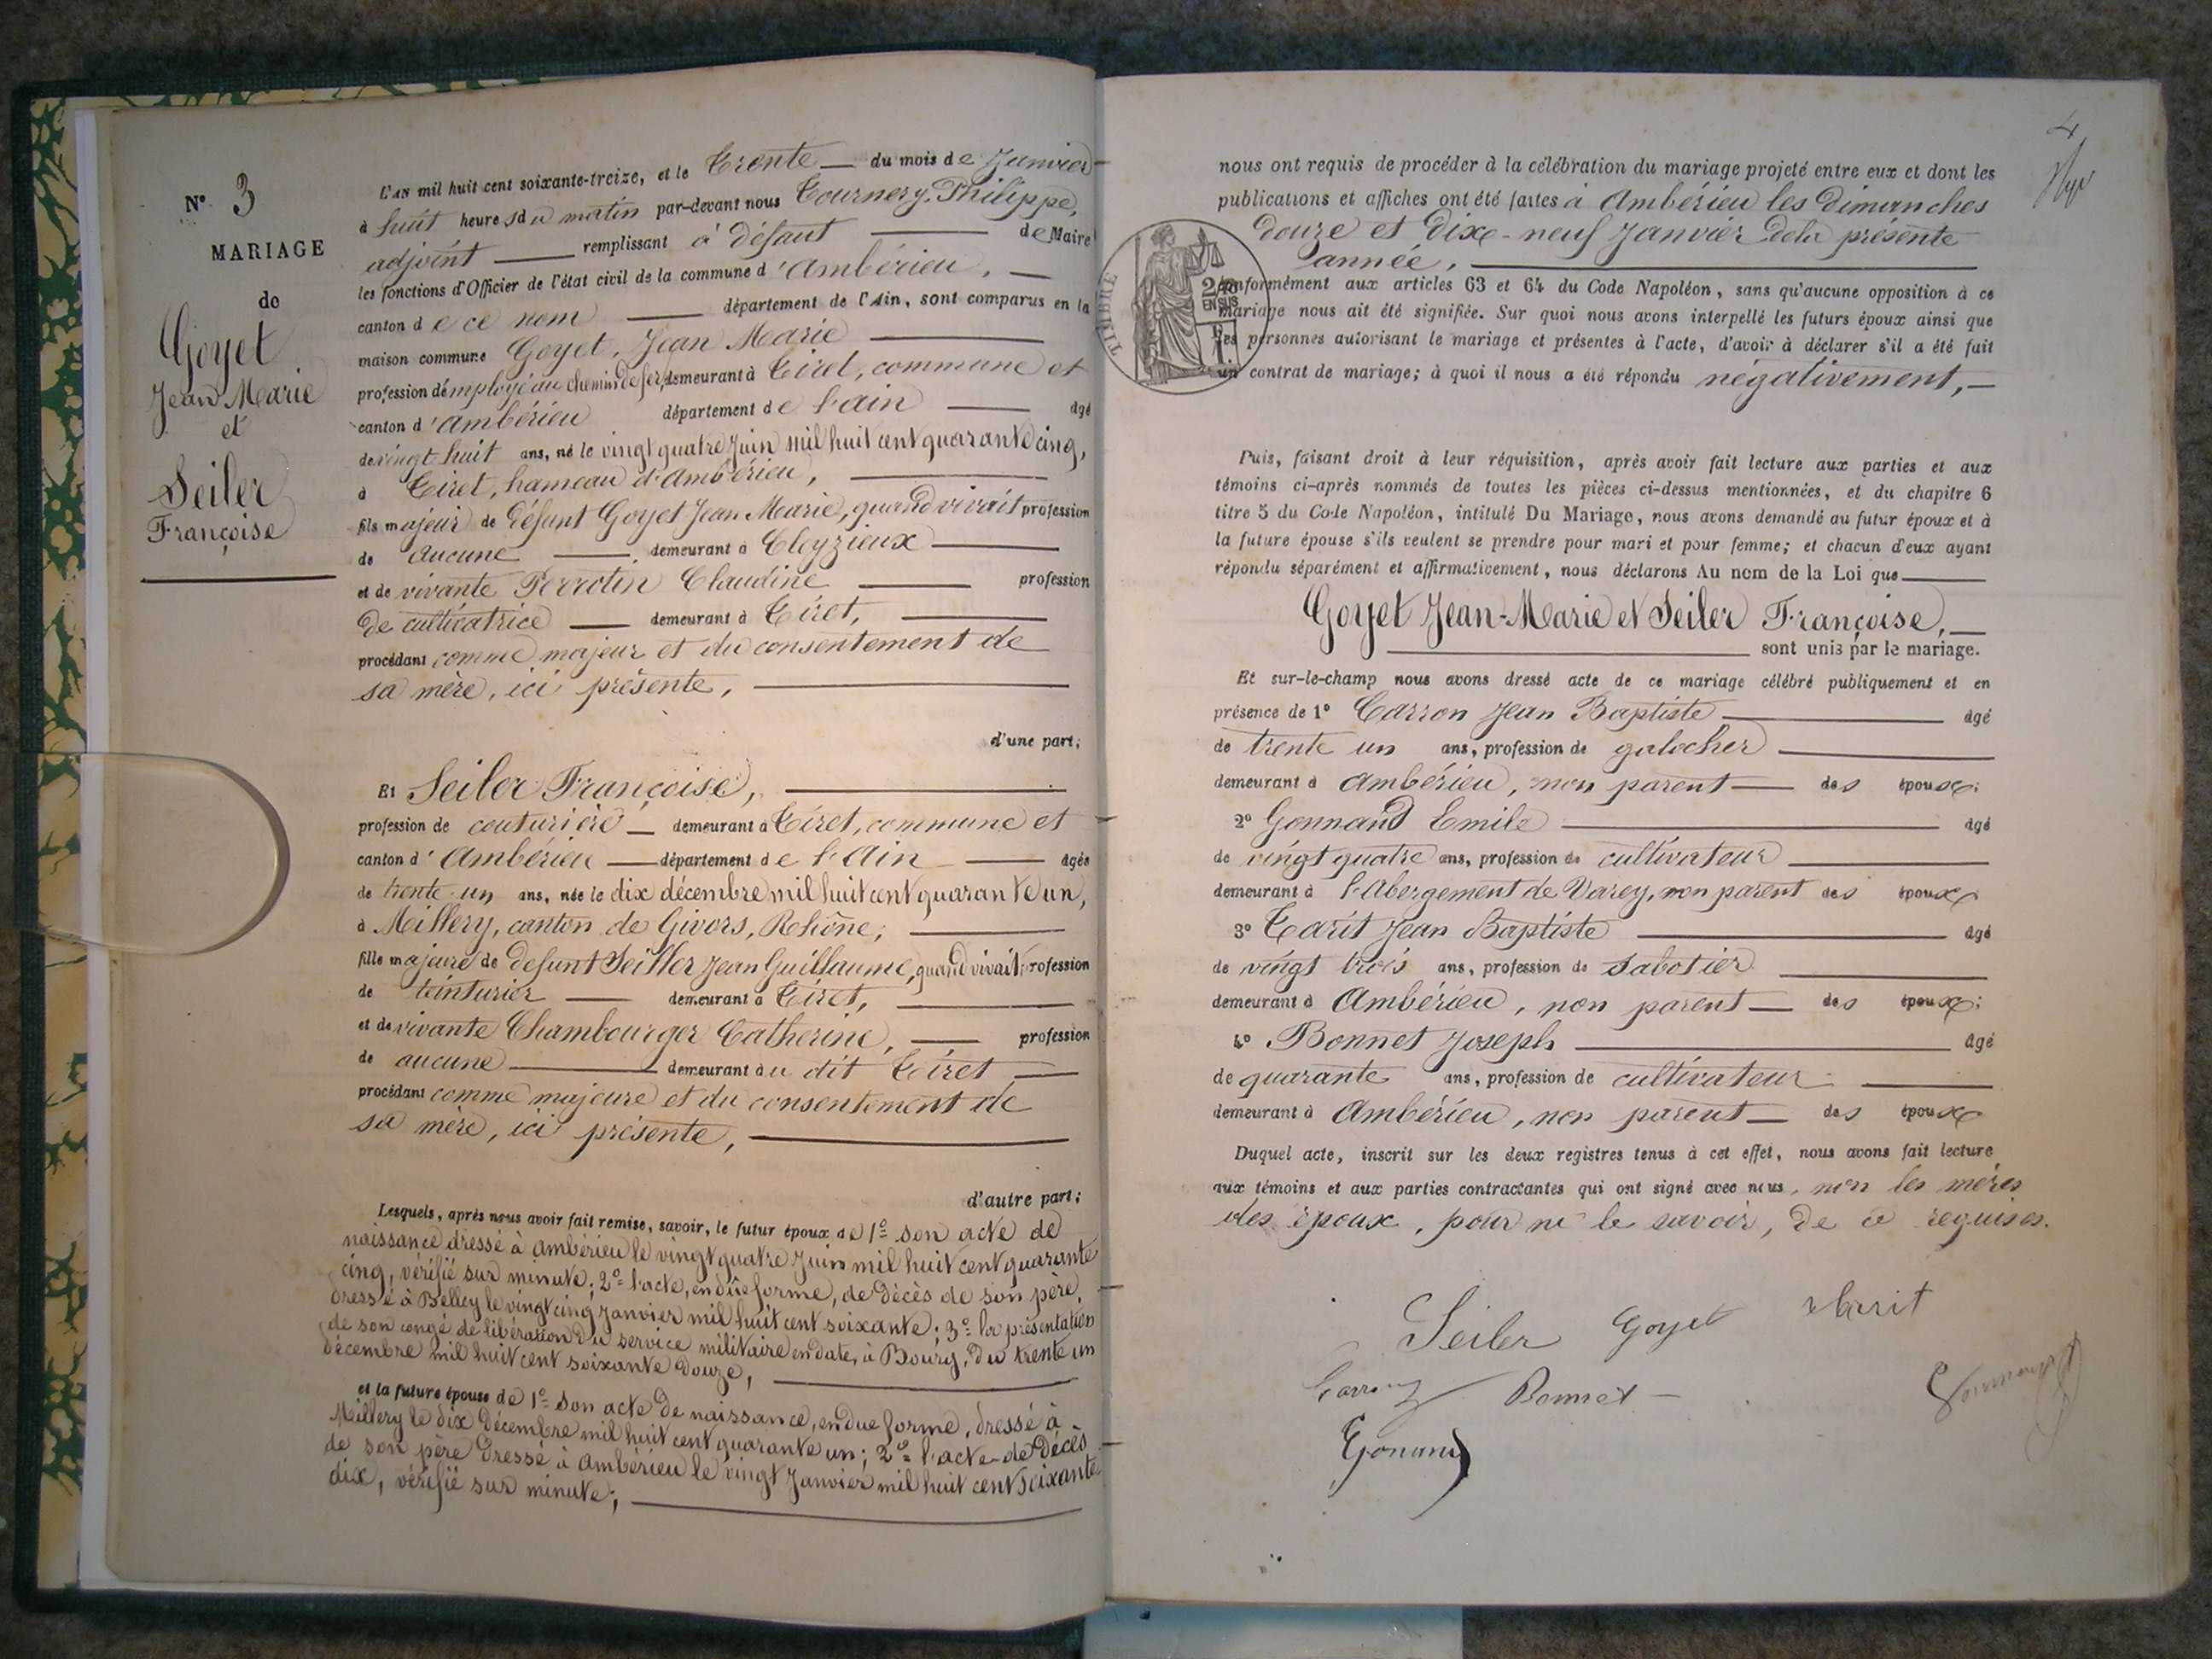 N° 3
MARIAGE
de
Goyet
Jean Marie
et
Seiler
Françoise
L'AN mil huit cent soixante-treize, et le trente du mois de Janvier
à huit heures du matin par-devant nous Tournery, Philippe,
adjoint remplissant à défaut de Maire
les fonctions d'Officier de l'état civil de la commune d'Ambérieu,
canton de ce nom département de l'Ain, sont comparus en la
maison commune Goyet, Jean Marie
profession d'employé au chemin de fer, demeurant à Tiret, commune et
canton d'Ambérieu département de l'ain âgé
de vingt huit ans, né le vingt quatre Juin mil huit cent quarante cinq,
à Tiret, hameau d'Ambérieu,
fils majeur de défunt Goyet Jean Marie, quand vivait profession
de aucune demeurant à Cleyzieux
et de vivante Perrotin Claudine profession
de cultivatrice demeurant à Tiret,
procédant comme majeur et du consentement de
sa mère, ici présente,
d'une part;
Et Seiler Françoise,
profession de couturière demeurant à Tiret, commune et
canton d'Ambérieu département de l'Ain âgée
de trente un ans, née le dix décembre mil huit cent quarante un,
à Millery, canton de Givors, Rhône,
fille majeure de defunt Seiller Jean Guillaume, quand vivait profession
de teinturier demeurant à Tiret,
et de vivante Chambourger Catherine, profession
de aucune demeurant au dit Tiret
procédant comme majeure et du consentement de
sa mère, ici présente,
d'autre part;
Lesquels, après nous avoir fait remise, savoir, le futur époux de 1° son acte de
naissance dressé à Ambérieu le vingt quatre Juin mil huit cent quarante
cinq, vérifié sur minute; 2° l'acte, en dûe forme, de décès de son père,
dressé à Belley le vingt cinq Janvier mil huit cent soixante; 3° la présentation
de son congé de libération du service militaire en date, à Bourg, du trente un
décembre mil huit cent soixante douze,
et la future épouse de 1° son acte de naissance, en due forme, dressé à
Millery le dix décembre mil huit cent quarante un; 2° l'acte de décès
de son père dressé à Ambérieu le vingt Janvier mil huit cent soixante
dix, vérifié sur minute;
4
nous ont requis de procéder à la célébration du mariage projeté entre eux et dont les
publications et affiches ont été faites à Ambérieu les dimanches
douze et dix-neuf Janvier dela présente
année,
TIMBRE
EN SUS
conformément aux articles 63 et 64 du Code Napoléon, sans qu'aucune opposition à ce
mariage nous ait été signifiée. Sur quoi nous avons interpellé les futurs époux ainsi que
les personnes autorisant le mariage et présentes à l'acte, d'avoir à déclarer s'il a été fait
un contrat de mariage; à quoi il nous a été répondu négativement,
Puis, faisant droit à leur réquisition, après avoir fait lecture aux parties et aux
témoins ci-après nommés de toutes les pièces ci-dessus mentionnées, et du chapitre 6
titre 5 du Code Napoléon, intitulé Du Mariage, nous avons demandé au futur époux et à
la future épouse s'ils veulent se prendre pour mari et pour femme; et chacun d'eux ayant
répondu séparément et affirmativement, nous déclarons Au nom de la Loi que
Goyet Jean-Marie et Seiler Françoise,
sont unis par le mariage.
Et sur-le-champ nous avons dressé acte de ce mariage célébré publiquement et en
présence de 1° Carron Jean Baptiste âgé
de trente un ans, profession de galocher
demeurant à Ambérieu, non parent des époux;
2° Gonnand Emile âgé
de vingt quatre ans, profession de cultivateur
demeurant à l'Abergement de Varey, non parent des époux
3° Tarit Jean Baptiste âgé
de vingt trois ans, profession de sabotier
demeurant à Ambérieu, non parent des époux;
4° Bonnet Joseph âgé
de quarante ans, profession de cultivateur
demeurant à Ambérieu, non parent des époux
Duquel acte, inscrit sur les deux registres tenus à cet effet, nous avons fait lecture
aux témoins et aux parties contractantes qui ont signé avec nous, non les mères
des époux, pour ne le savoir, de ce requises.
Seiler Goyet tarit
Carron Bonnet Tournery
Gonnand